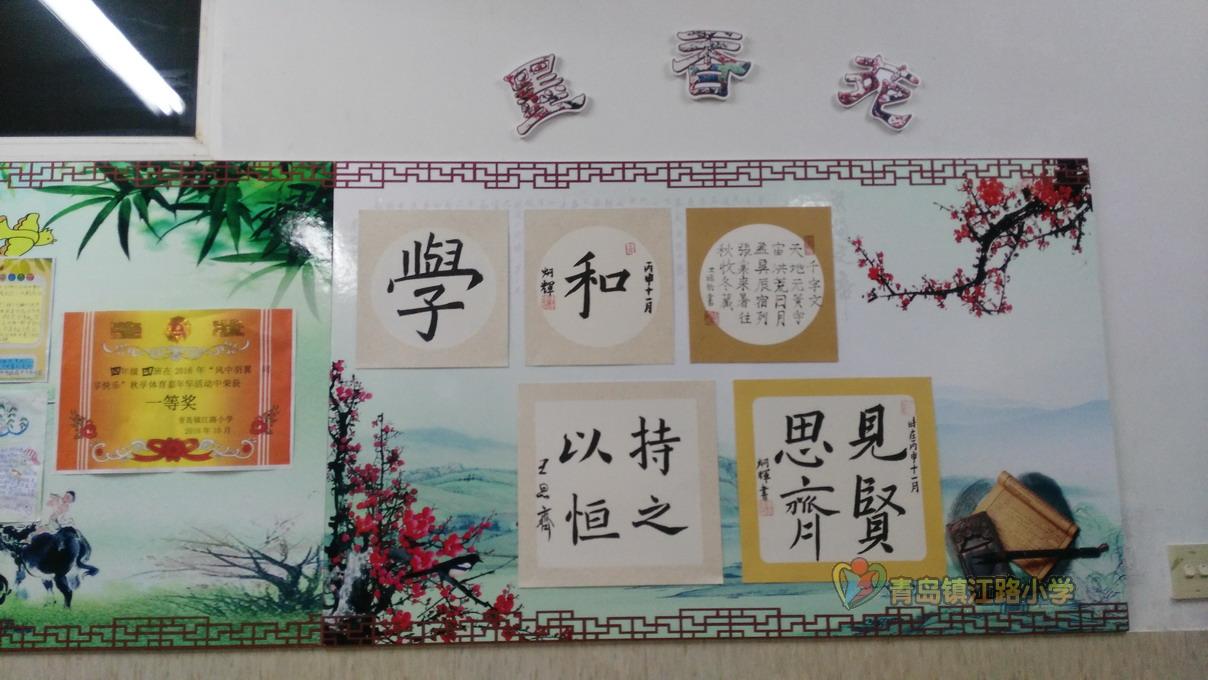 墨香苑
學
和
丙申十一月
炯輝
千字文
天地元黄宇
宙洪荒日月
盈昃辰宿列
張寒来暑往
秋收冬藏
持之
以恒
王思齊
見賢
思齊
时在丙申十一月
炯輝書
奖状
四年级 四班在 2016 年“风中羽翼
享快乐”秋季体育嘉年华活动中荣获
一等奖
青岛镇江路小学
2016 年 10 月
青岛镇江路小学